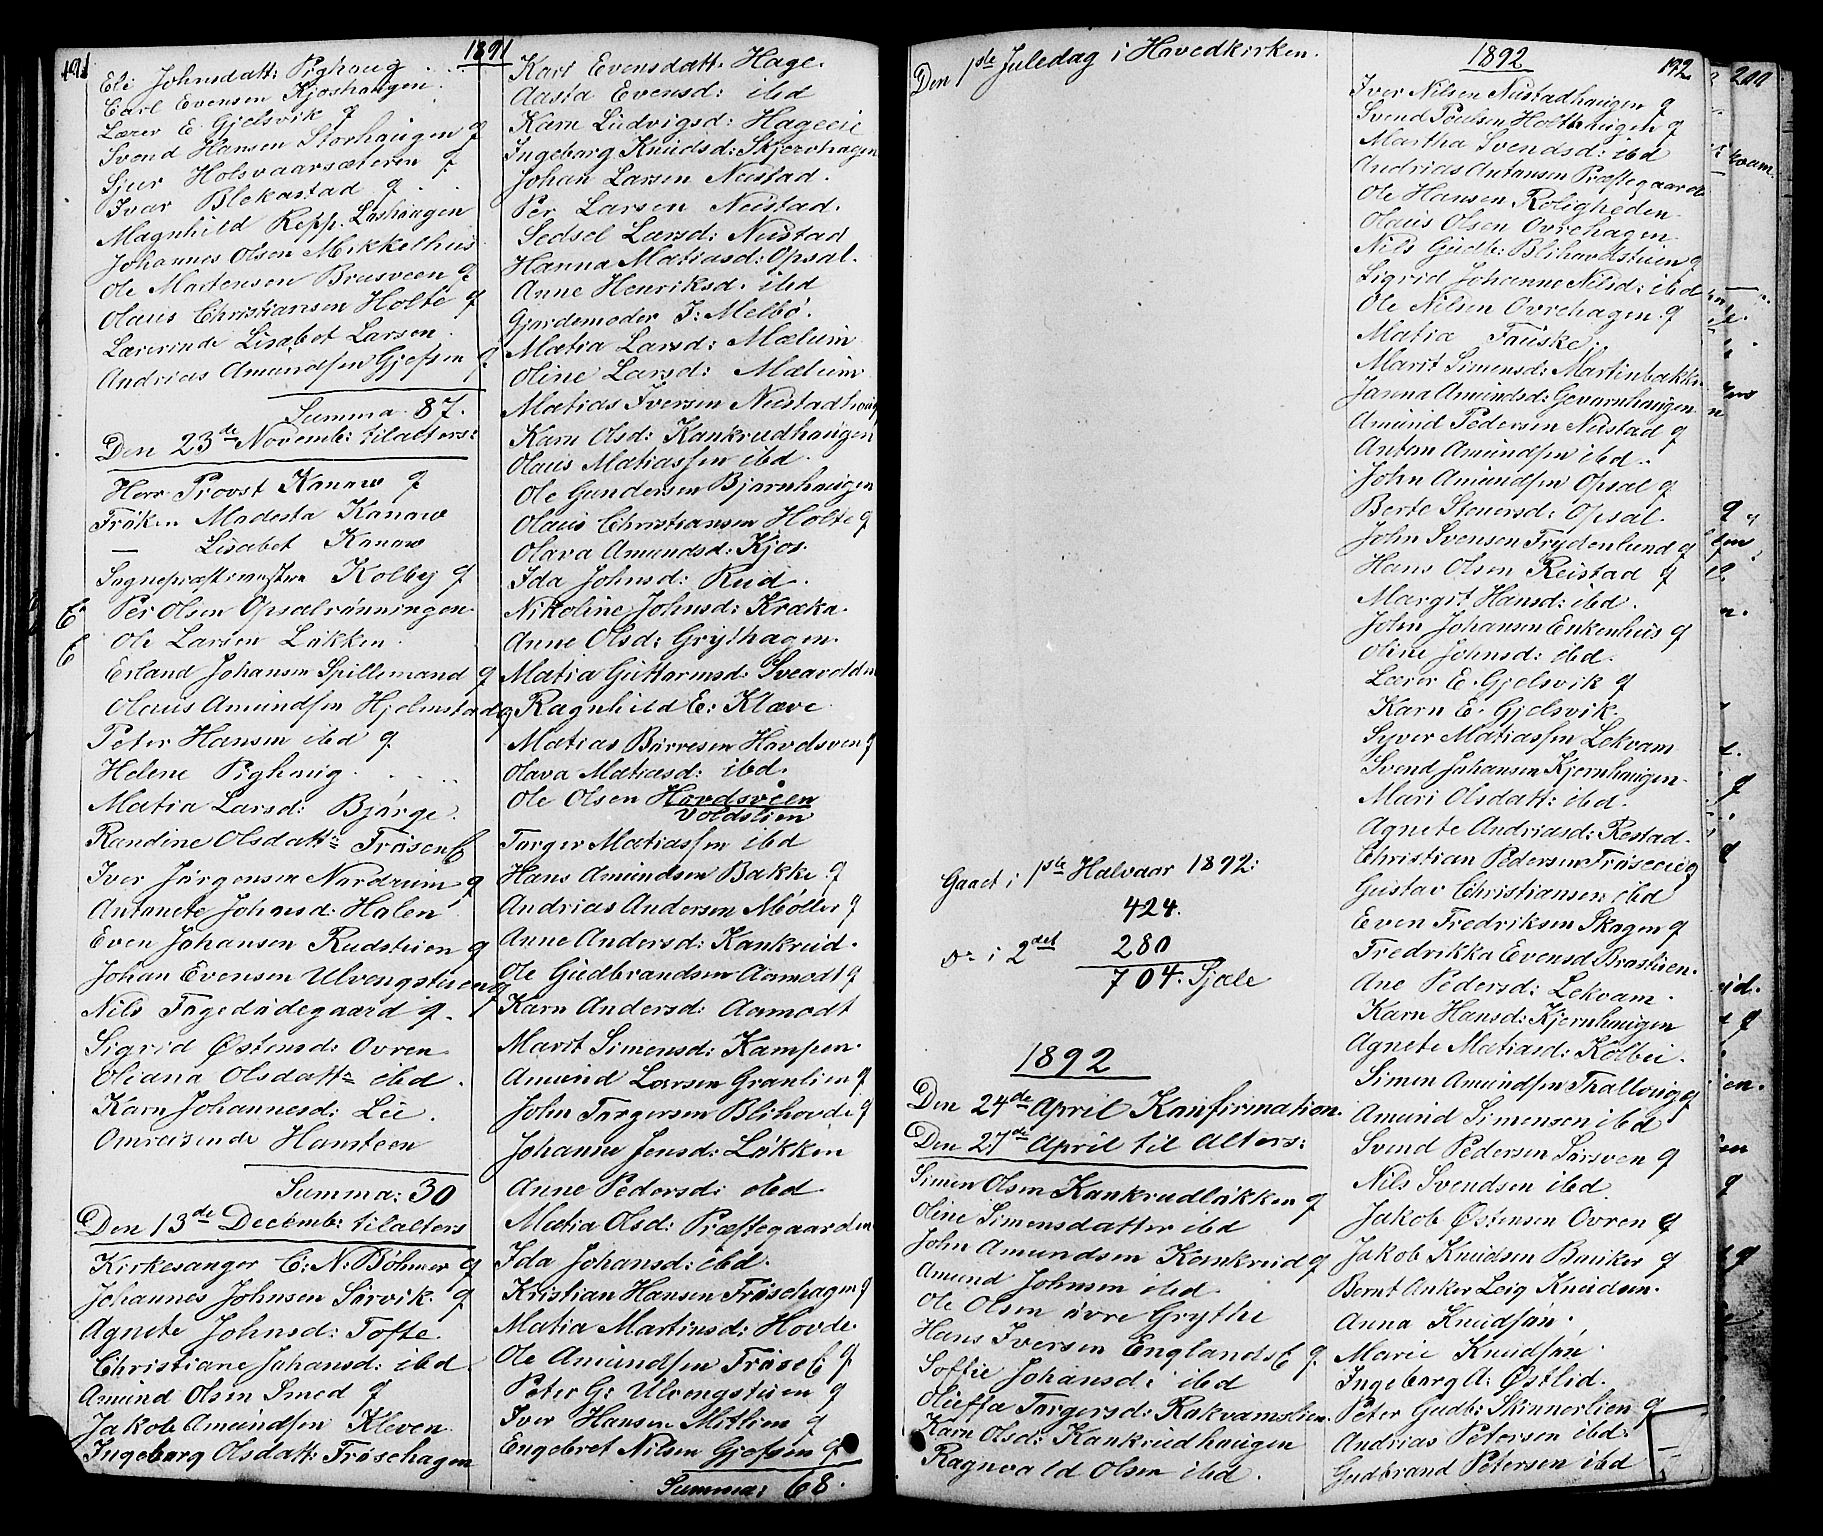 191
1891
Eli Johnsdatt: Pighaug
Carl Evensen Kjoshaugen
Lærer E. Gjelsvik q
Svend Hansen Storhaugen q
Sjur Holsvaarsæteren q
Ivar Blekastad q
Magnhild Repp. Loshaugen
Johannes Olsen Mikkelhus
Ole Martensen Brusveen q
Olaus Christiansen Holte q
Lærerinde Lisabet Larsen
Andrias Amundssen Gjefsen q
Summa 87.
Den 23de Novemb: til alters:
Herr Provst Kanaw q
Frøken Modesta Kanaw
— Lisabet Kanaw
Sognepræst Kolbej q
E Per Olsen Opsalrønningen
E Ole Larsen Løkken
Erland Johansen Spillemand q
Olaus Amundssen Hjelmstad q
Peter Hansen ibd q
Helene Pighaug
Matia Larsd: Bjørge
Randine Olsdatt: Frøsen E
Iver Jørgensen Nordrum q
Antonete Johnsd: Holen
Even Johansen Rudstuen q
Johan Evensen Ulvengstuen q
Nils Fagedødegaard q
Sigrid Østensd: Ovren
Oliana Olsdatt: ibd
Karn Johannesd: Lie
Omreisende Hansteen
Summa: 30
Den 13de Decemb: til alters
Kirkesanger C: N: Böhmer q
Johannes Johnsen Sørvik q
Agnete Johnsd: Tofte
Christiane Johansd: ibd
Amund Olsen Smed q
Jakob Amundssen Kleven
Ingeborg Olsdatt: Frøsehagen
Kari Evensdatt. Hage.
Aasta Evensd: ibd
Karn Ludvigsd: Hageeie
Ingeborg Knudsd: Skjervhagen
Johan Larsen Nustad.
Per Larsen Nustad.
Sedsel Larsd: Nustad
Hanna Matiasd: Opsal.
Anne Henriksd. ibd
Gjordemoder J: Melbø.
Matia Larsd: Mælum
Oline Larsd: Mælum
Matias Iversen Nustadhaug
Karn Olsd: Kankrudhaugen
Olaus Matiassen ibd
Ole Gundersen Bjørnhaugen
Olaus Christiansen Holte q
Olava Amundsd: Kjos.
Ida Johnsd: Rud.
Nikoline Johnsd: Kræka.
Anne Olsd: Grythagen.
Matia Guttormsd: Svearolden
Ragnhild E: Klæve
Matias Børresen Hovdsven q
Olava Matiasd: ibd.
Ole Olsen Hovdsveen
Voldslien
Torger Matiassen ibd
Hans Amundsen Bakke q
Andrias Andersen Møller q
Anne Andersd: Kankrud.
Ole Gudbrandsen Aamodt q
Karn Andersd: Aamodt
Marit Simensd: Kampen.
Amund Larsen Granlien q
John Torgersen Blihovde q
Johanne Jensd: Løkken
Anne Pedersd: ibd
Matia Olsd: Præstegaarden
Ida Johansd: ibd.
Kristian Hansen Frøsehagen q
Matia Martinsd: Hovde.
Ole Amundssen Frøse E q
Peter G: Ulvengstuen q
Iver Hansen Mitlien q
Engebret Nilsen Gjefsen q
Summa: 68.
Den 1ste Juledag i Hovedkirken.
Gaaet i 1ste Halvaar 1892:
424.
Do i 2det 280
704. Sjæle
1892
Den 24de April Konfirmation.
Den 27de April til alters:
Simen Olsen Kankrudløkken q
Oline Simensdatter ibd
John Amundsen Konkrud q
Amund Johnsen ibd
Ole Olsen øvre Grythe
Hans Iversen Englands E q
Soffie Johansd: ibd
Oleffa Torgersd: Rakvamslien.
Karn Olsd: Kankrudhaugen
Ragnvald Olsen ibd.
1892
192
Iver Nilsen Nustadhaugen q
Svend Poulsen Holthaugen q
Martha Svendsd: ibd
Andrias Antonsen Præstegaarde
Ole Hansen Roligheden
Olaus Olsen Ovrehagen
Nils Gudb: Blihovdstuen q
Sigrid Johanne Nilsd: ibd
Ole Nilsen Ovrehagen q
Matia Fauske.
Marit Simensd: Martinbakke
Janna Amundsd: Govarnhaugen
Amund Pedersen Nustad q
Anton Amundssen ibd.
John Amundssen Opsal q
Berte Steuersd: Opsal.
John Svensen Frydenlund q
Hans Olsen Reistad q
Margit Hansd: ibd.
John Johansen Enkenhus q
Oline Johnsd: ibd.
Lærer E. Gjelsvik q
Karn E. Gjelsvik.
Syver Matiassen Lekvam
Svend Johansen Kjernhaugen
Mari Olsdatt: ibd.
Agnete Andriasd: Rostad.
Christian Pedersen Frøseeie q
Gustav Christiansen ibd
Even Fredriksen Skogen q
Fredrikka Evensd Brostuen.
Ane Pedersd: Lekvam.
Karn Hansd: Kjernhaugen
Agnete Matiasd: Kolbei.
Simen Amundssen Thallaug q
Amund Simensen ibd
Svend Pedersen Sørsven q
Nils Svendsen ibd
Jakob Østensen Ovren q
Jakob Knudsen Bauker q
Bernt Anker Leig Knudsen.
Anna Knudsøn.
Marie Knudsøn.
Ingeborg A: Østlid.
Peter Gudb: Skinnerlien q
Andrias Petersen ibd:
Gudbrand Petersen ibd
200